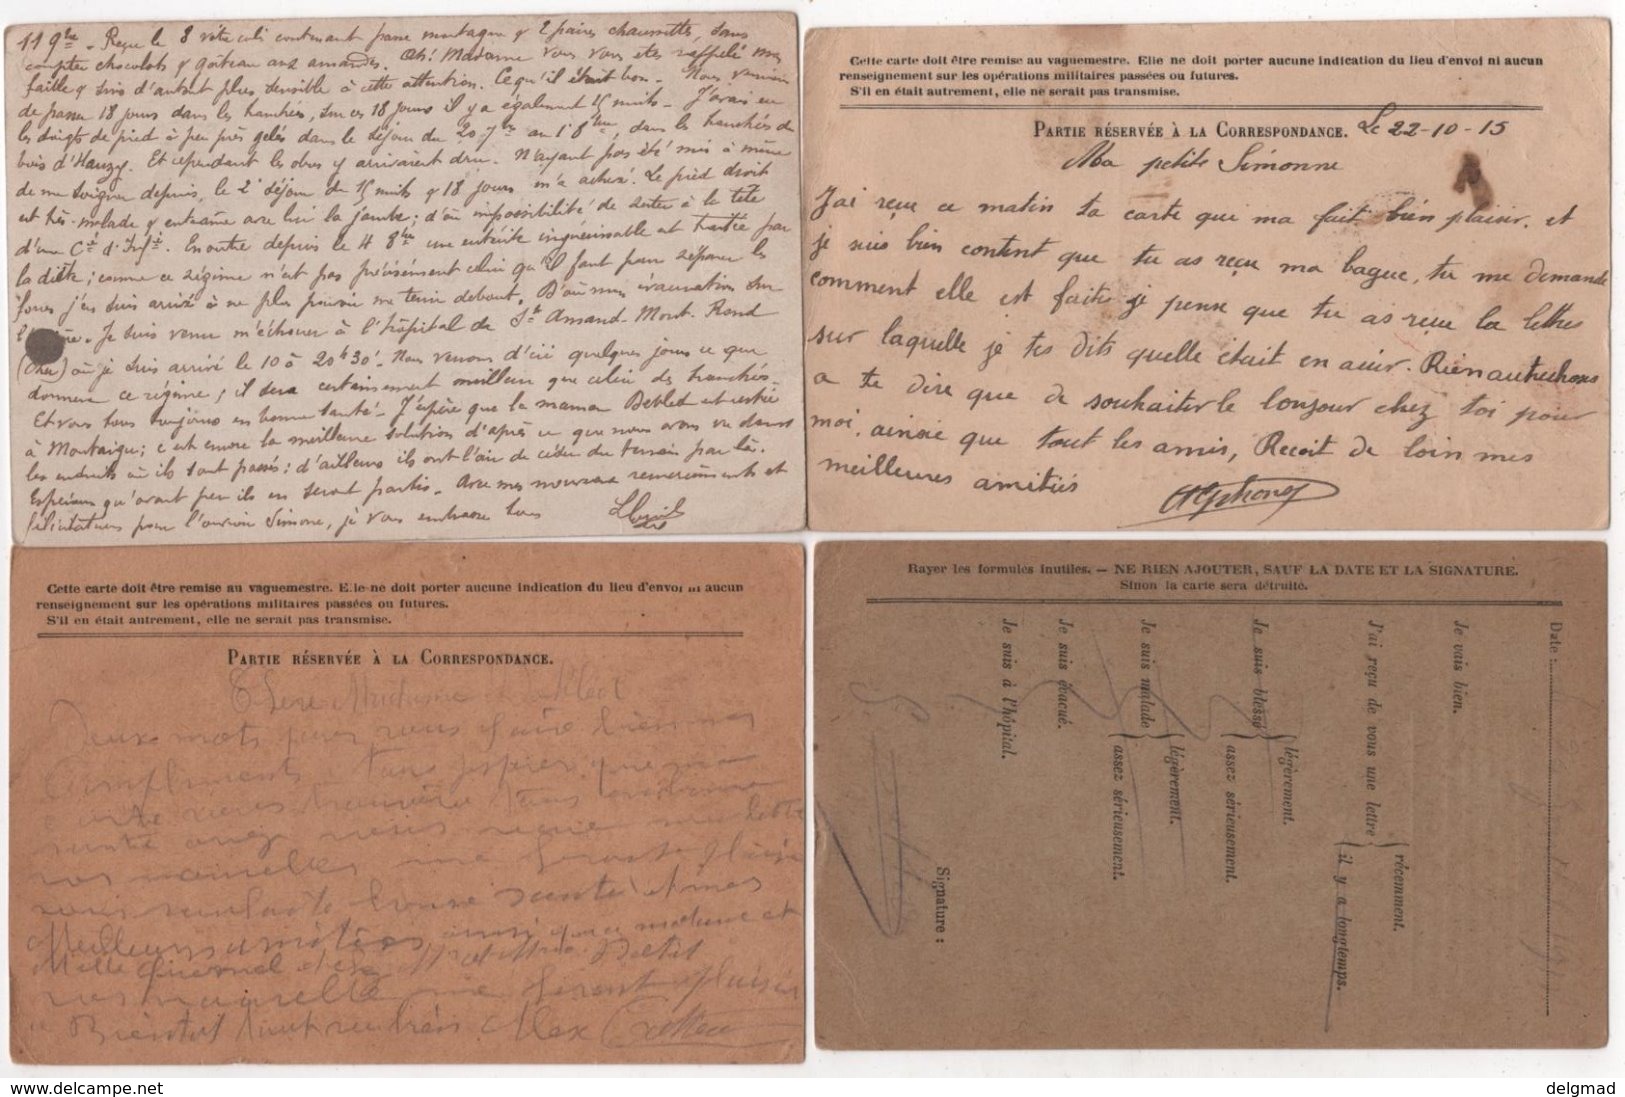 11 9bre - Reçu le 8 votre colis contenant passe montagne & 2 paires chaussettes, sans
compter chocolats & gateau aux amandes. Oh! Madame vous vous etes rappelé mon
faible & suis d'autant plus sensible à cette attention. Ce qu'il était bon - Nous venions
de passer 18 jours dans les tranchées, sur ces 18 jours il y a également 15 nuits - J'avais eu
les doigts de pied à peu près gelés dans le séjour du 20 7bre au 1er 8bre, dans les tranchées du
bois d'Hauzy. Et cependant les obus y arrivaient dru. N'ayant pas été mis à même
de me soigner depuis, le 2e séjour de 15 nuits & 18 jours m'a achevé. Le pied droit
est très malade & entraine avec lui la jambe; d'où impossibilité de rester à la tête
d'une Cie d'Infie. En outre depuis le 4 8bre une entérite inguérissable et traitée par
la diète; comme ce régime n'est pas précisément celui qu'il faut pour réparer les
forces j'en suis arrivé à ne plus pouvoir me tenir debout. D'où mon évacuation sur
Je suis venu m'échouer à l'hôpital de St Amand-Mont-Rond
(Cher) où je suis arrivé le 10 à 20h30'. Nous verrons d'ici quelques jours ce que
donnera ce régime; il sera certainement meilleur que celui des tranchées -
Et vous tous toujours en bonne santé - J'espère que la maman est restée
à Montaigu; c'est encore la meilleure solution d'après ce que nous avons vu dans
les endroits où ils sont passés; d'ailleurs ils ont l'air de céder du terrain par là.
Espérons qu'avant peu ils en seront partis - Avec mes nouveaux remerciements et
félicitations pour Simone, je vous embrasse tous
Cette carte doit être remise au vaguemestre. Elle ne doit porter aucune indication du lieu d'envoi ni aucun
renseignement sur les opérations militaires passées ou futures.
S'il en était autrement, elle ne serait pas transmise.
PARTIE RÉSERVÉE À LA CORRESPONDANCE. Le 22-10-15
Ma petite Simonne
J'ai reçue ce matin ta carte qui ma fait bien plaisir. et
je suis bien content que tu as reçue ma bague, tu me demande
comment elle est faite je pense que tu as reçue la lettres
sur laquelle je tes dits quelle était en acier. Rien autrechoses
a te dire que de souhaiter le bonjour chez toi pour
moi, ainsie que tout les amis, Recoit de loin mes
meilleures amitiés
Alphonse
Cette carte doit être remise au vaguemestre. Elle ne doit porter aucune indication du lieu d'envoi ni aucun
renseignement sur les opérations militaires passées ou futures.
S'il en était autrement, elle ne serait pas transmise.
PARTIE RÉSERVÉE À LA CORRESPONDANCE.
Chere Madame
Deux mots pour vous faire bien mes
Compliments tans jespere que ma
carte vous trouvera tous en bonne
santé avez vous reçue ma lettre
vos nouvelles me feront plaisir
vous souhaite bonne santé et mes
Meilleurs amitiées ainsi que madame et
Mlle et Mr et Mme Petit
vos nouvelle me feront plaisir
a Bientôt Alex
Rayer les formules inutiles. — NE RIEN AJOUTER, SAUF LA DATE ET LA SIGNATURE.
Sinon la carte sera détruite.
Date :
Je vais bien.
J'ai reçu de vous une lettre { récemment.
il y a longtemps.
Je suis blessé { légèrement.
assez sérieusement.
Je suis malade { légèrement.
assez sérieusement.
Je suis évacué.
Je suis à l'hôpital.
Signature :
www.delcampe.net
delgmad